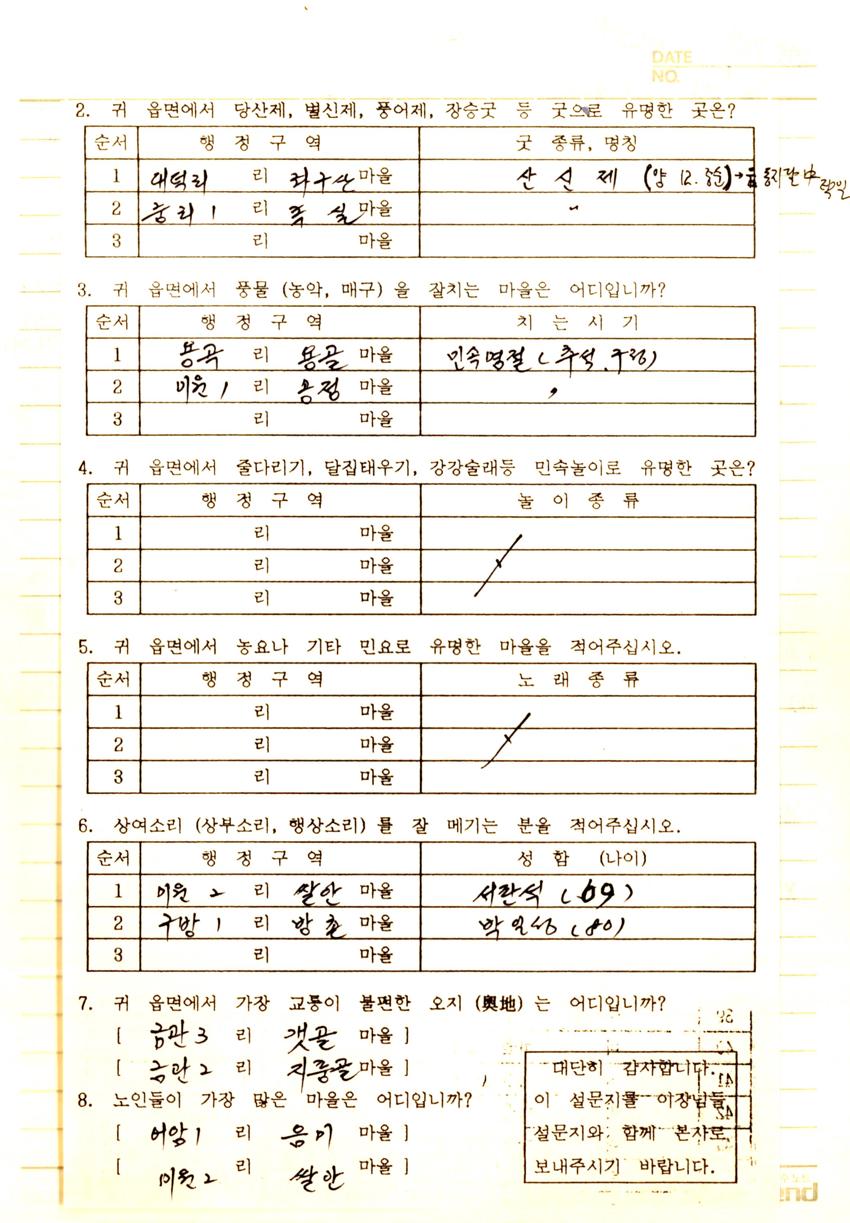 DATE
NO.
2. 귀 읍면에서 당산제, 별신제, 풍어제, 장승굿 등 굿으로 유명한 곳은?
순서 행 정 구 역 굿 종류, 명칭
1 대덕리 리 좌구산 마을 산 신 제 (양 12. 중순) → 동지달 中 택일
2 중리 1 리 마을 〃
3 리 마을
3. 귀 읍면에서 풍물 (농악, 매구) 을 잘치는 마을은 어디입니까?
순서 행 정 구 역 치 는 시 기
1 용곡 리 용골 마을 민속명절 (추석, 구정)
2 미원 1 리 용정 마을 〃
3 리 마을
4. 귀 읍면에서 줄다리기, 달집태우기, 강강술래등 민속놀이로 유명한 곳은?
순서 행 정 구 역 놀 이 종 류
1 리 마을
2 리 마을
3 리 마을
5. 귀 읍면에서 농요나 기타 민요로 유명한 마을을 적어주십시오.
순서 행 정 구 역 노 래 종 류
1 리 마을
2 리 마을
3 리 마을
6. 상여소리 (상부소리, 행상소리) 를 잘 메기는 분을 적어주십시오.
순서 행 정 구 역 성 함 (나이)
1 미원 2 리 쌀안 마을 서란석 (69)
2 구방 1 리 방촌 마을 박일성 (80)
3 리 마을
7. 귀 읍면에서 가장 교통이 불편한 오지 (奧地) 는 어디입니까?
[ 금관 3 리 갯골 마을 ]
[ 금관 2 리 지중골 마을 ]
8. 노인들이 가장 많은 마을은 어디입니까?
[ 어암 1 리 마을 ]
[ 미원 2 리 쌀안 마을 ]
대단히 감사합니다.
이 설문지를 이장님들
설문지와 함께 본사로
보내주시기 바랍니다.